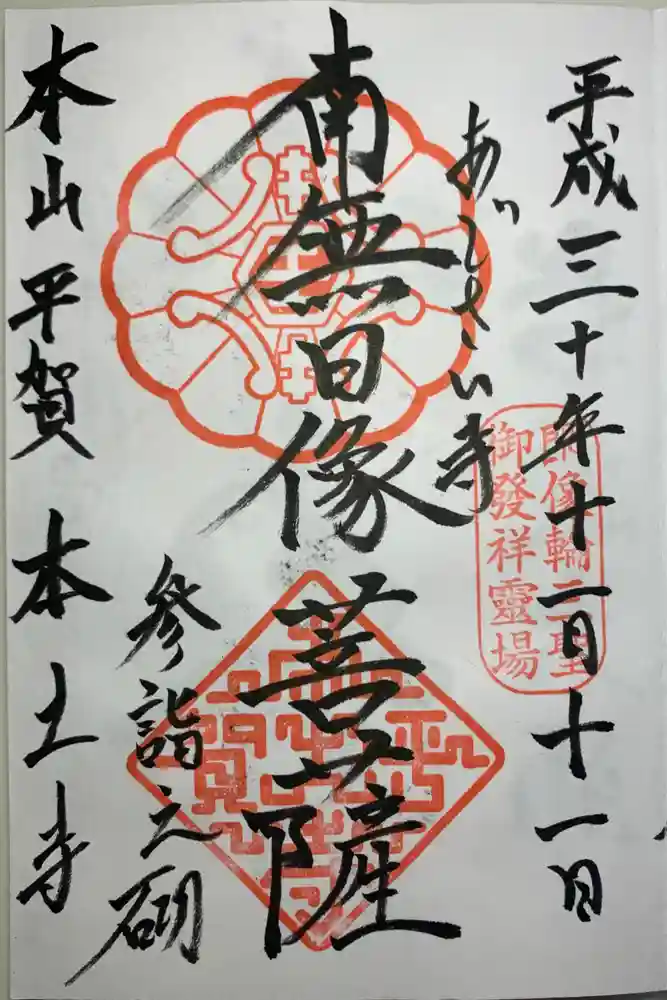 平成三十年十二月十一日
朗像輪三聖
御發祥靈場
あじさい寺
南無日像菩薩
参詣之砌
本山 平賀 本土寺